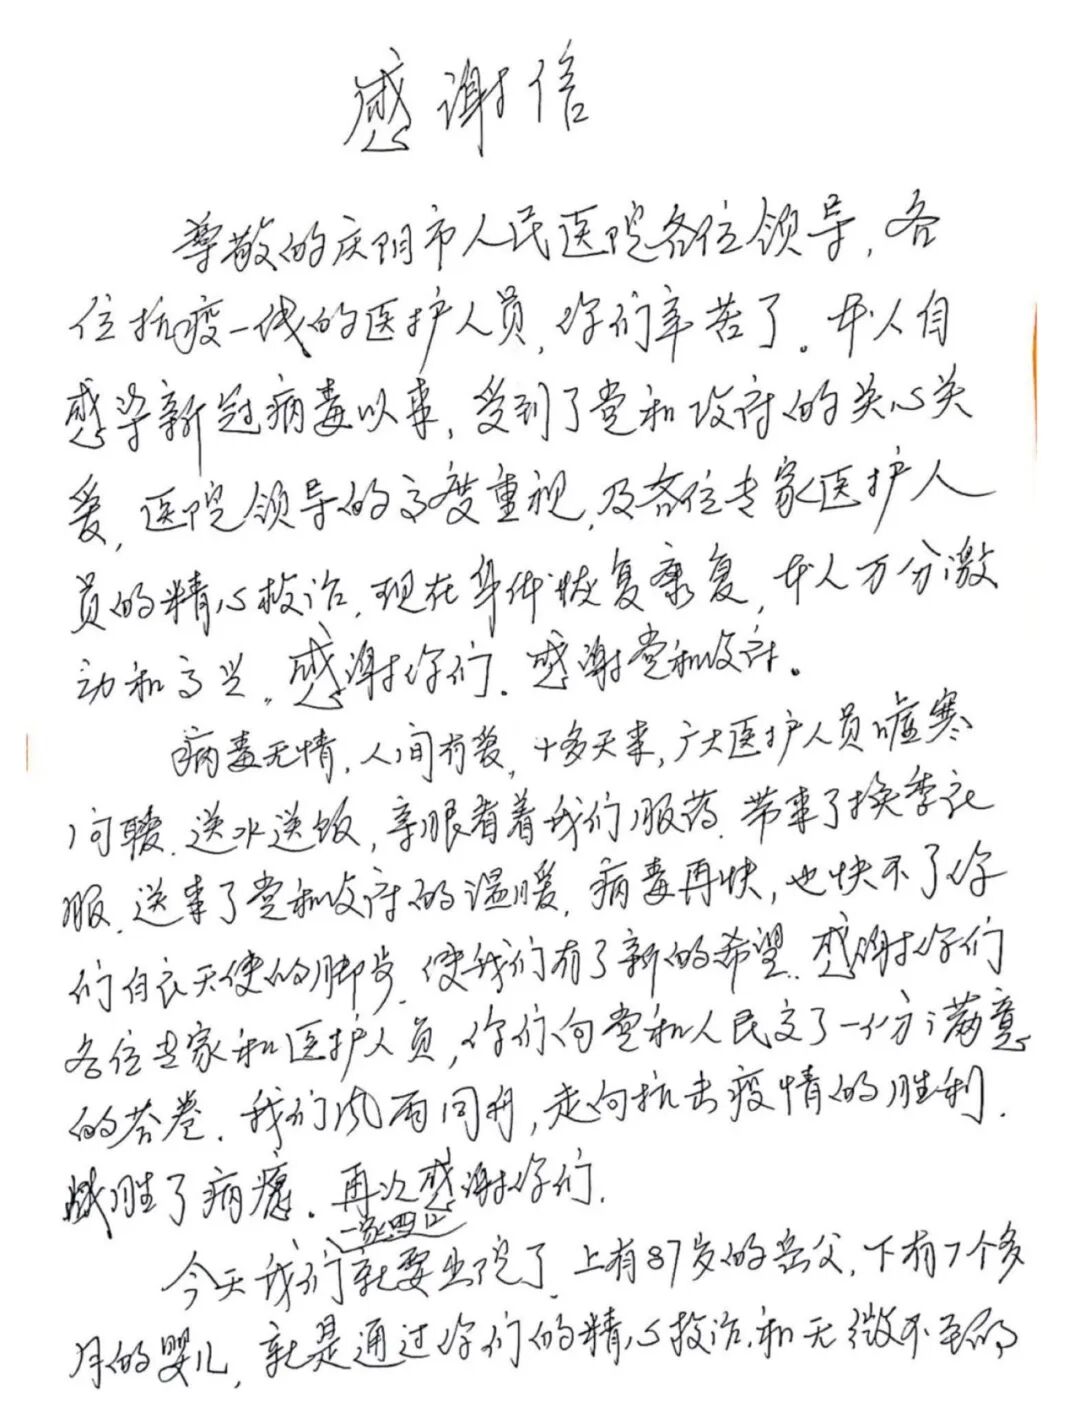 感谢信
尊敬的庆阳市人民医院各位领导,各
位抗疫一线的医护人员,你们辛苦了。本人自
感染新冠病毒以来,受到了党和政府的关心关
爱,医院领导的高度重视,及各位专家医护人
员的精心救治,现在身体恢复康复,本人万分激
动和高兴。感谢你们.感谢党和政府。
病毒无情,人间有爱,十多天来,广大医护人员嘘寒
问暖.送水送饭,亲眼看着我们服药.带来了换季衣
服.送来了党和政府的温暖.病毒再快,也快不了你
们白衣天使的脚步.使我们有了新的希望.感谢你们
各位专家和医护人员,你们向党和人民交了一份满意
的答卷.我们风雨同舟,走向抗击疫情的胜利.
战胜了病魔.再次感谢你们.
今天我们一家四口就要出院了.上有87岁的岳父,下有7个多
月的婴儿,就是通过你们的精心救治和无微不至的